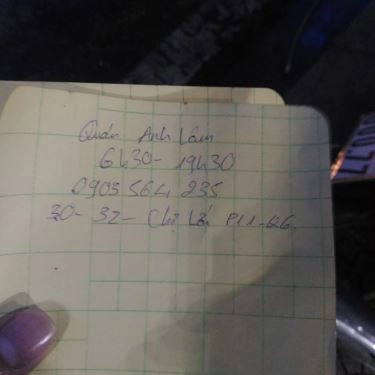 Quán Anh Lâm
6h30 - 19h30
0903 564 235
30 - 32 - Chợ Lớn P11 - Q6.